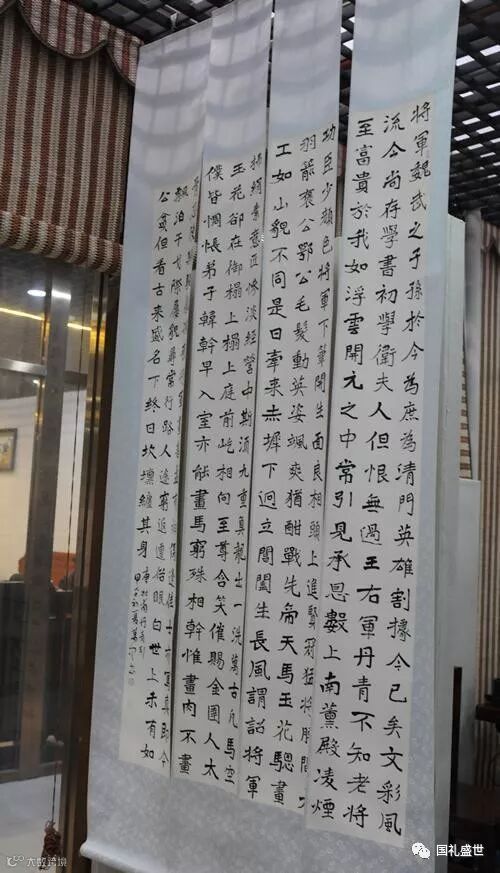 將軍魏武之子孫於今為庶為清門英雄割據今已矣文彩風
流今尚存學書初學衛夫人但恨無過王右軍丹青不知老將
至富貴於我如浮雲開元之中常引見承恩數上南薰殿凌煙
功臣少顏色將軍下筆開生面良相頭上進賢冠猛將腰間
羽箭褒公鄂公毛髮動英姿颯爽猶酣戰先帝天馬玉花驄畫
工如山貌不同是日牽來赤墀下迥立閶闔生長風謂詔將軍
拂絹素意匠慘淡經營中斯須九重真龍出一洗萬古凡馬空
玉花卻在御榻上榻上庭前屹相向至尊含笑催賜金圉人太
僕皆惆悵弟子韓幹早入室亦能畫馬窮殊相幹惟畫肉不畫
逢佳士亦寫真即今
飄泊干戈際屢貌尋常行路人途窮返遭俗眼白世上未有如
公貧但看古來盛名下終日坎壈纏其身
大数跨境
国礼盛世